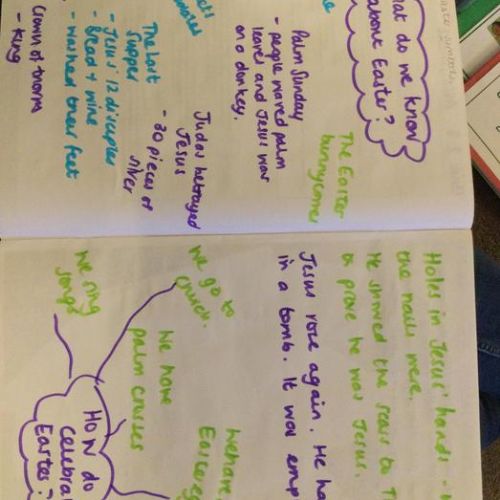 hat do we know
about Easter?
Palm Sunday
- people waved palm
leaves and Jesus was
on a donkey.
The Easter
bunny comes
Judas betrayed
Jesus
- 30 pieces of
silver
The Last
Supper
- Jesus' 12 disciples
- Bread + wine
- washed their feet
Crown of thorns
- King
Holes in Jesus' hands -
the nails were.
He showed the scars to T
on prove he was Jesus.
Jesus rose again. He ha
in a tomb. It was emp
we go to
church.
We have
palm crosses
We have
Easter eg
we sing
songs
How do
celebra
Easter?